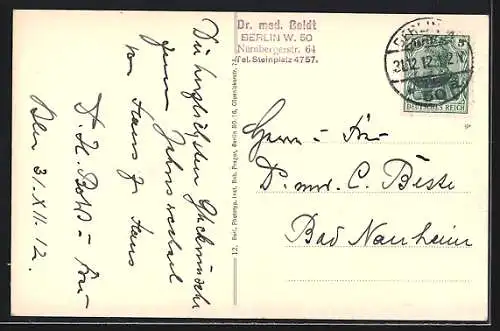 Die herzlichsten Glückwünsche
zum Jahreswechsel
von Haus z. Haus
Dr. H. Boldt u. Frau
Bln 31.XII.12.
12. Berl. Phototyp. Inst. Rob. Prager, Berlin NO. 16
Dr. med. Boldt
BERLIN W. 50
Nürnbergerstr. 64
Tel. Steinplatz 4757.
BERLIN
31.12.12
50
5
DEUTSCHES REICH
Herrn u. Frau
Dr. med. C. Beste
Bad Nauheim